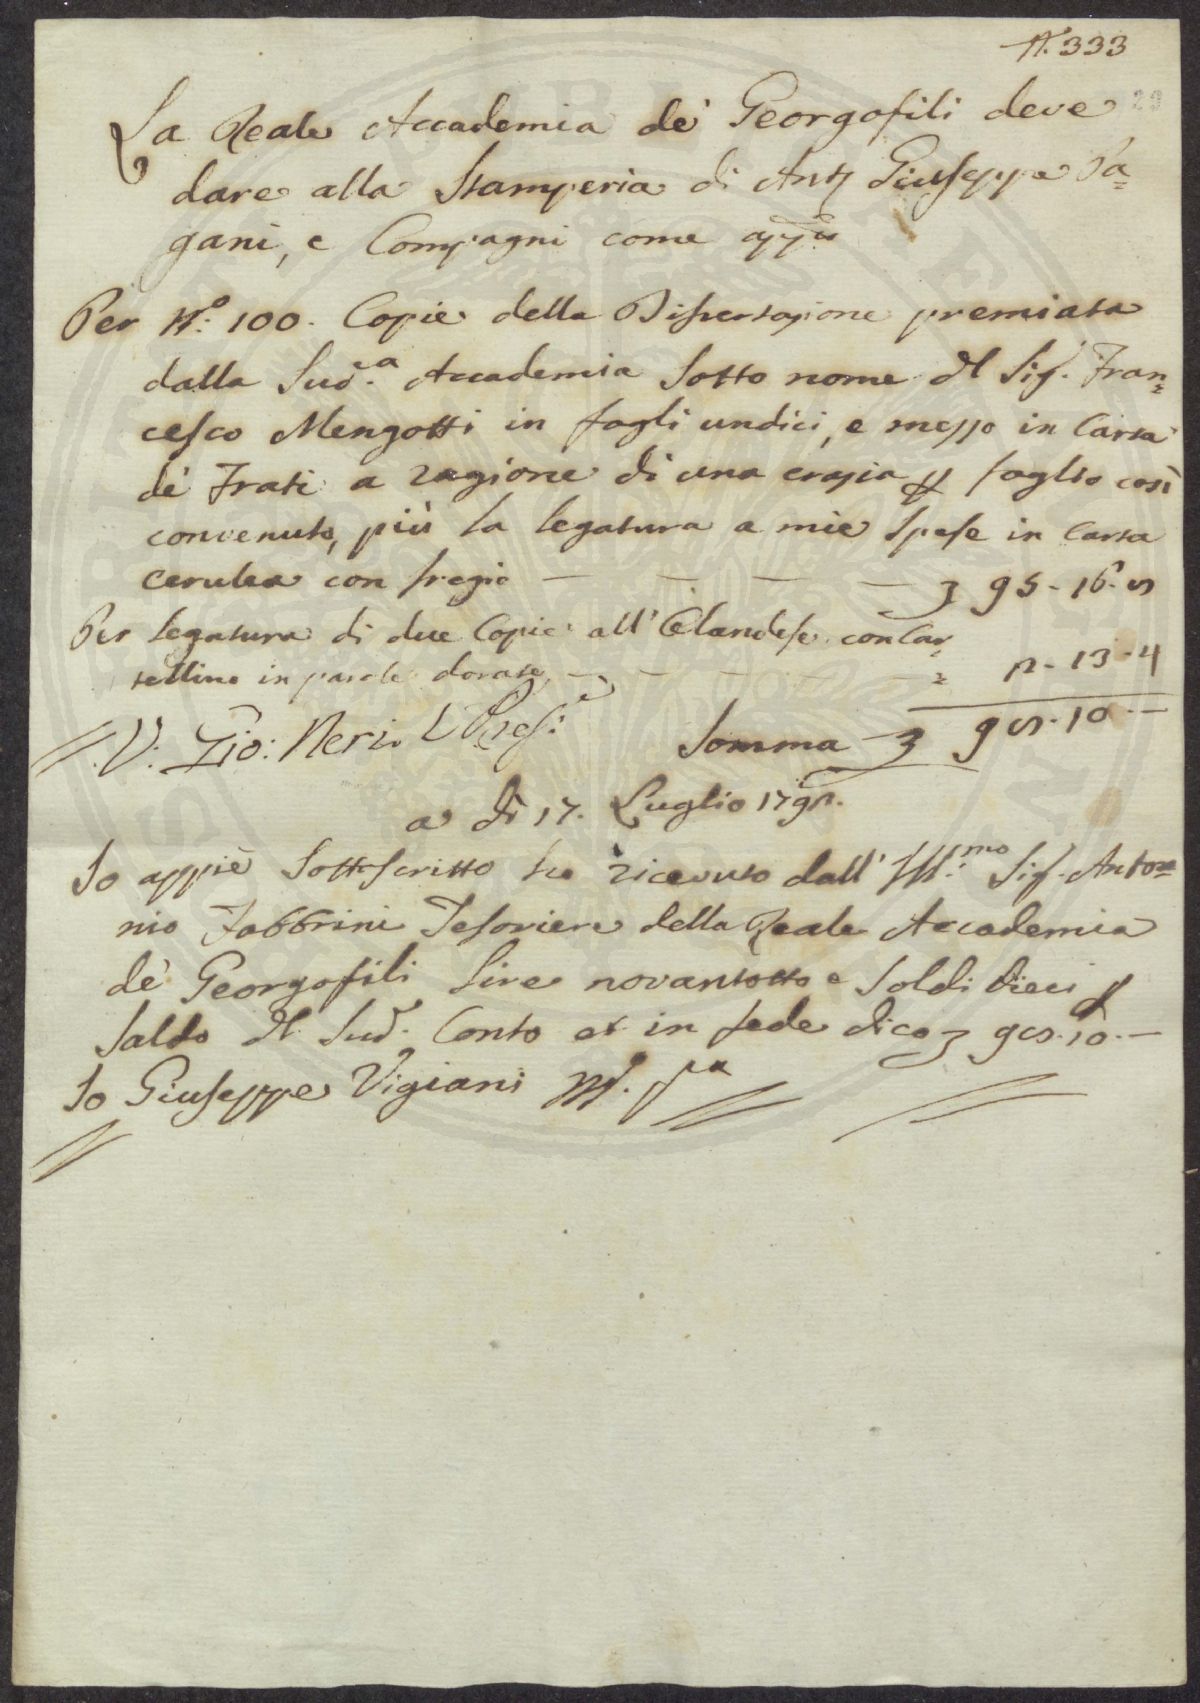 N. 333
29
La Reale Accademia de' Georgofili deve
dare alla Stamperia di Ant. Giuseppe Pa=
gani, e Compagni come app.e
Per N.o 100. Copie della Dissertazione premiata
dalla Sud.a Accademia Sotto nome del Sig. Fran=
cesco Mengotti in fogli undici, e mezzo in Carta
de' Frati a ragione di una crazia p foglio così
convenuto, più la legatura a mie Spese in Carta
cerulea con fregio — — — — £ 95-16.8
Per legatura di due Copie all'Olandese con Car=
tellino in parole dorate — — — — = 2-13-4
V. Gio: Neri V. Pres.e
Somma £ 98.10.—
a dì 17. Luglio 1792.
Io appiè Sottoscritto ho ricevuto dall' Ill.mo Sig. Anto=
nio Fabbrini Tesoriere della Reale Accademia
de' Georgofili Lire novantotto e Soldi dieci p
Saldo del Sud. Conto et in fede dico £ 98.10.—
Io Giuseppe Vigiani M. pa